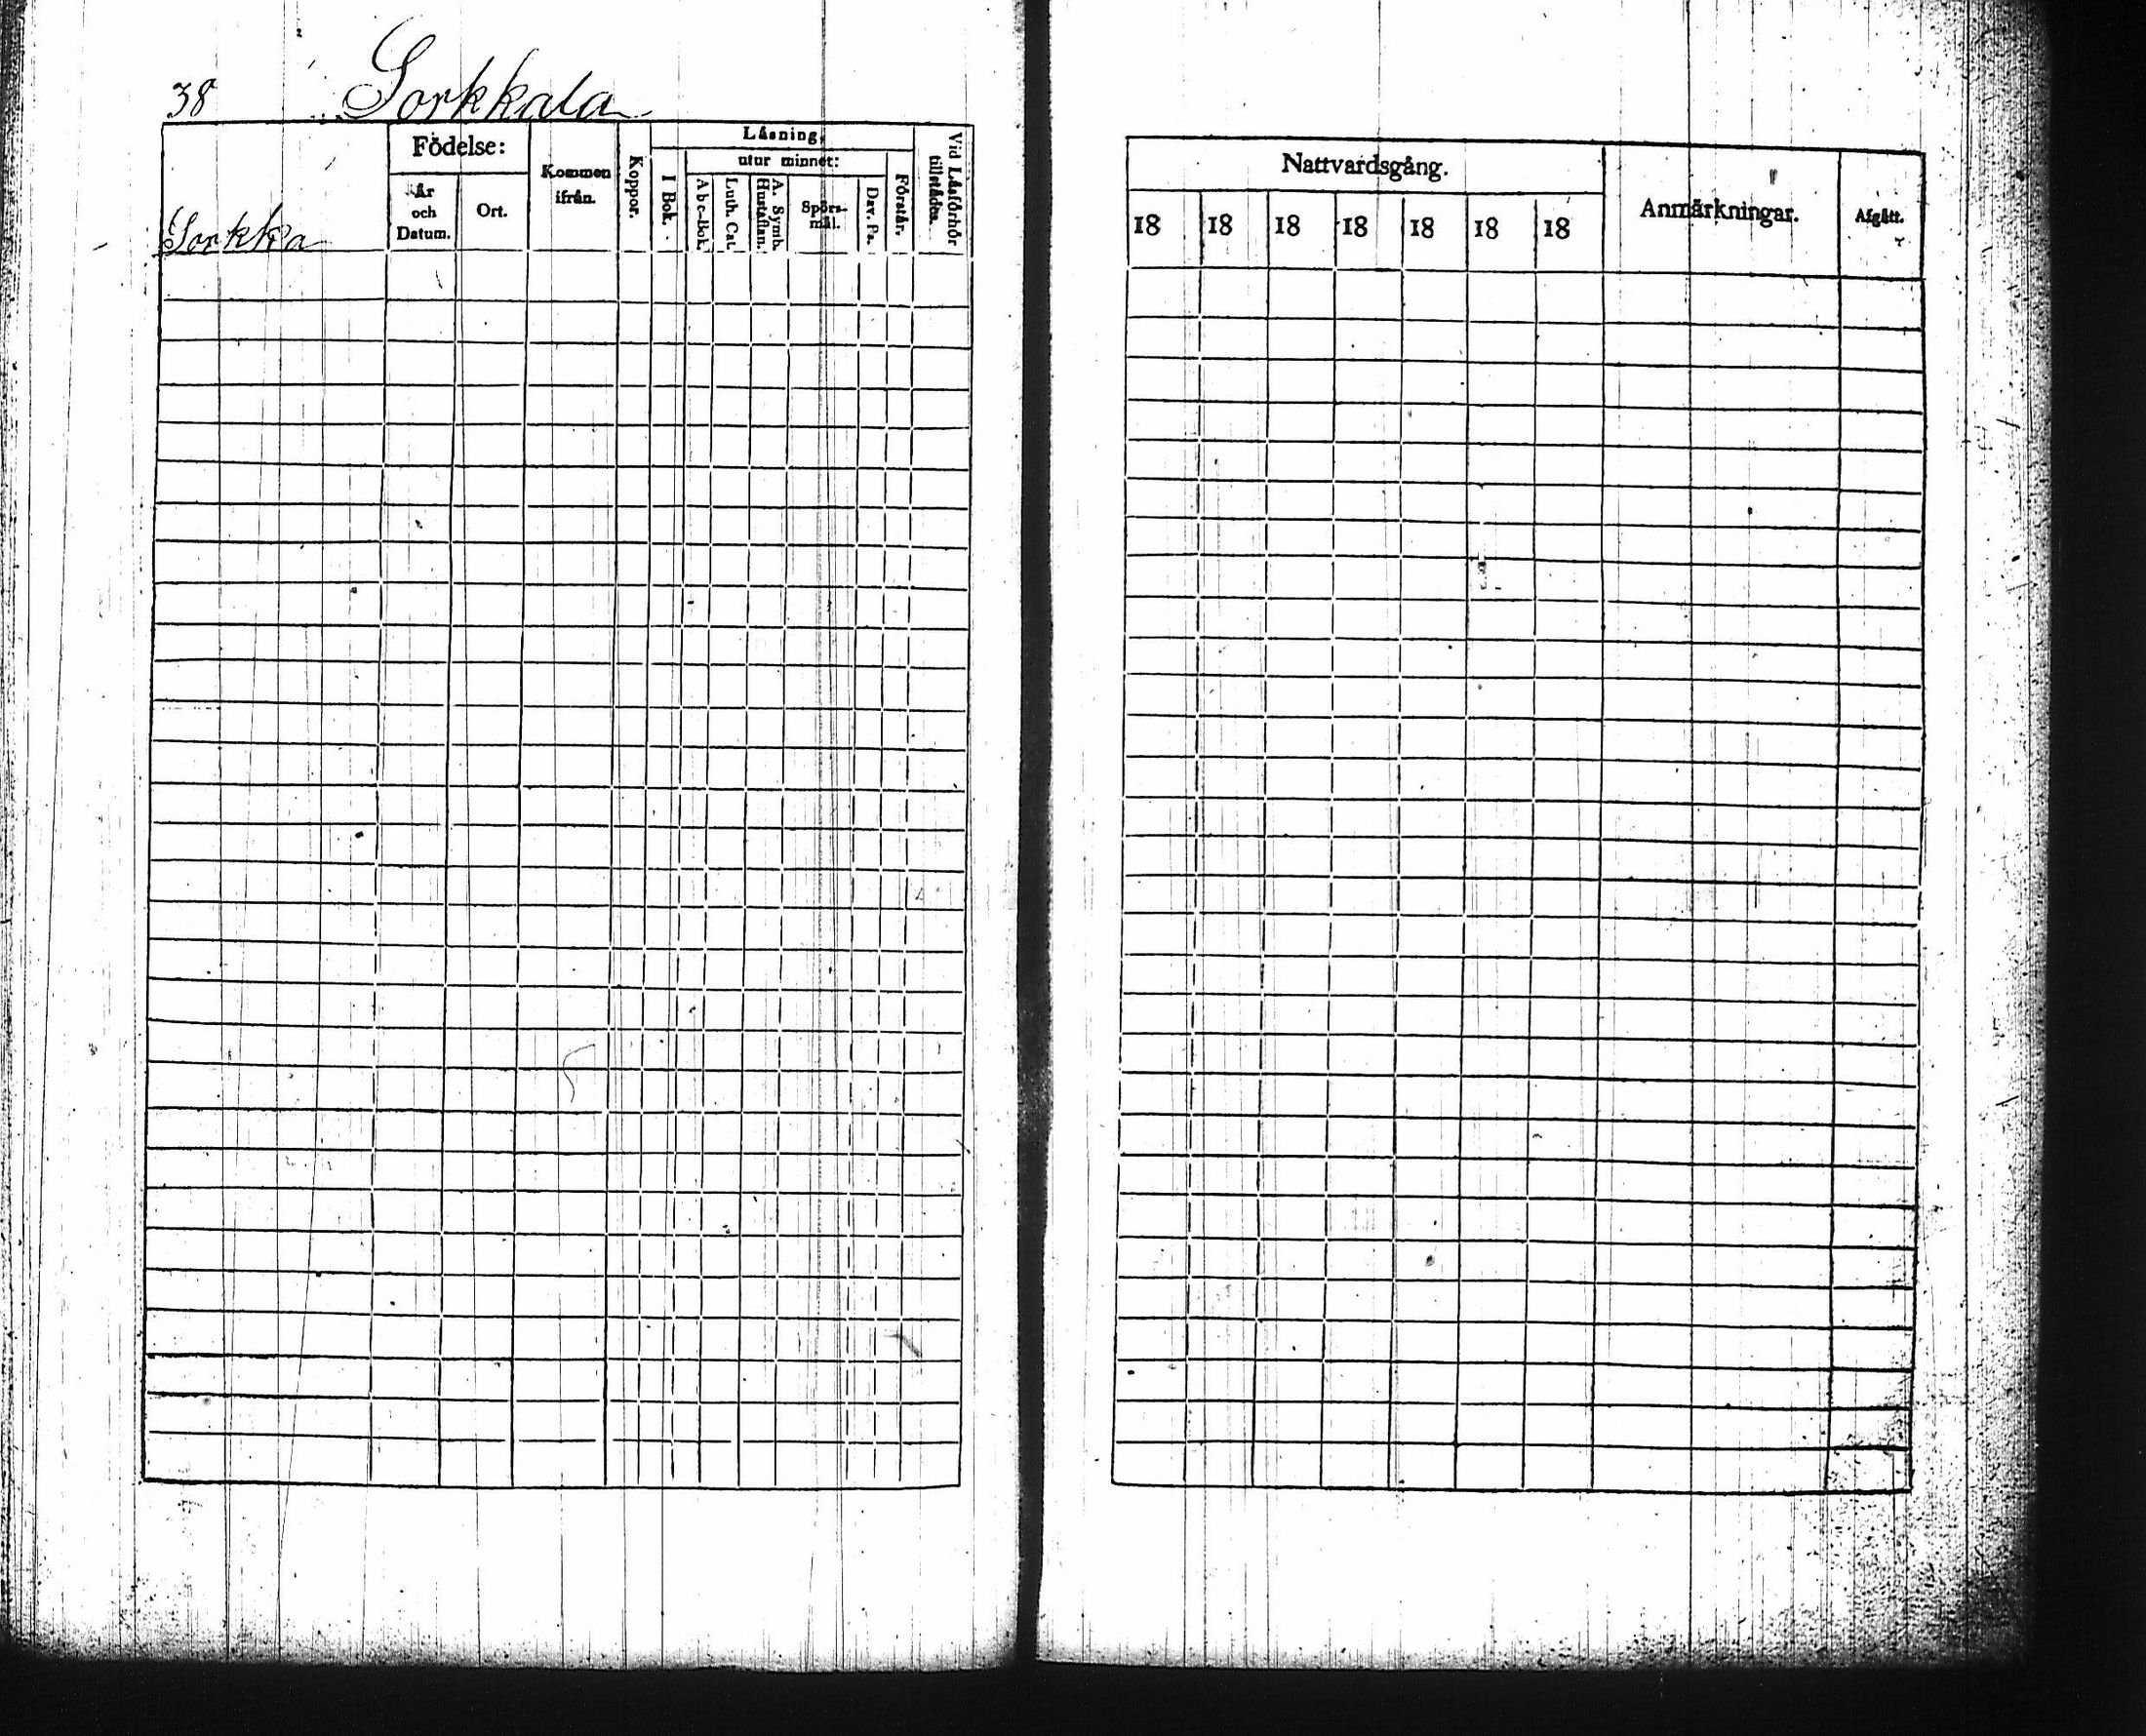 38 Sorkkala
Födelse:
År
och
Datum.
Ort.
Kommen
ifrån.
Koppor.
Läsning,
utur minnet:
I Bok.
Abc-Bok.
Luth. Cat.
A. Symb.
Hustaflan.
Spörs-
mål.
Dav. Ps.
Förstår.
Vid Läsförhör
tillstädes.
Sorkka
Nattvardsgång.
18 18 18 18 18 18 18
Anmärkningar.
Afgått.